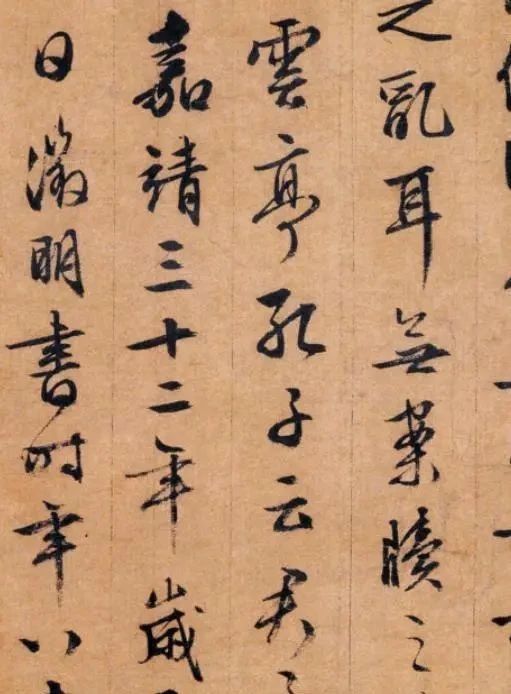 之亂耳無案牘之
雲亭孔子云君
嘉靖三十二年歲
日徵明書時年八